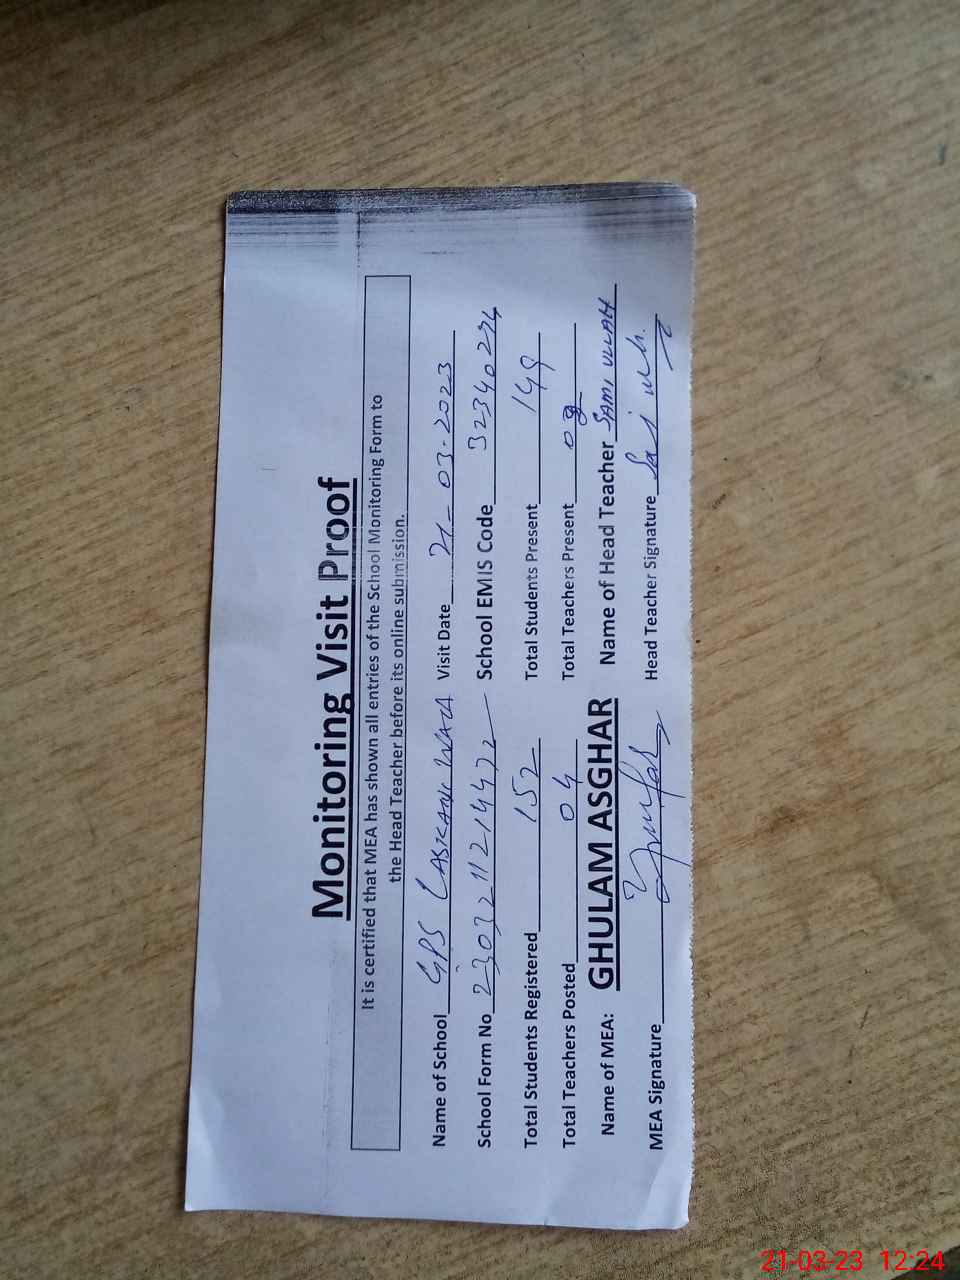 Monitoring Visit Proof
It is certified that MEA has shown all entries of the School Monitoring Form to
the Head Teacher before its online submission.
Name of School GPS LASKANI WALA Visit Date 21-03-2023
School Form No School EMIS Code 32340274
Total Students Registered 152 Total Students Present 149
Total Teachers Posted 04 Total Teachers Present
Name of MEA: GHULAM ASGHAR Name of Head Teacher SAMI ULLAH
MEA Signature Head Teacher Signature
21-03-23 12:24